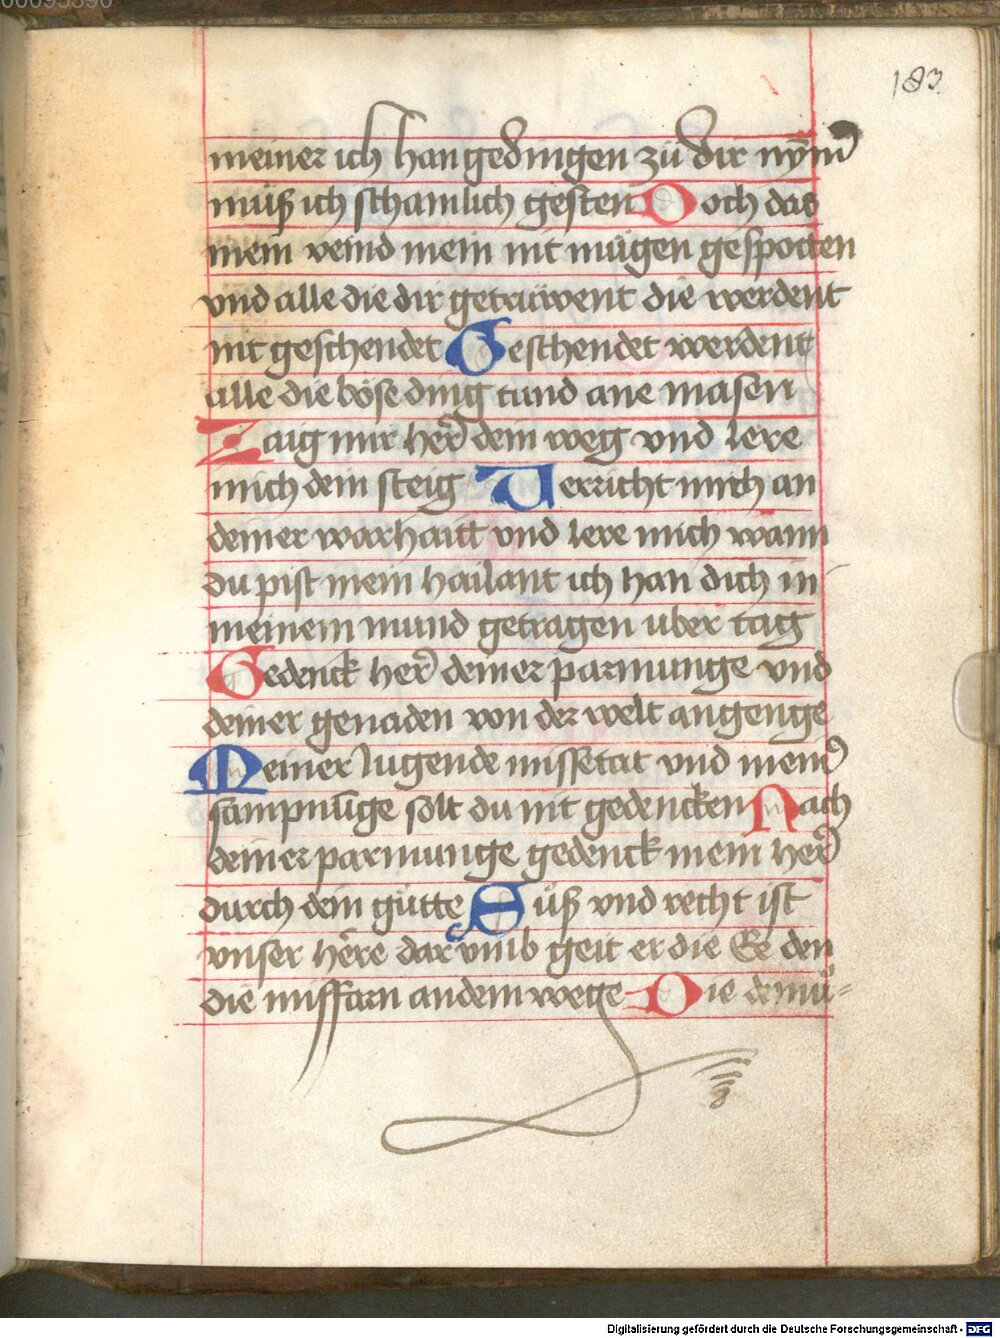 00095390
183
meiner ich han gedingen zu dir nym̄
müß ich schamlich gesten Doch das
mein veind mein nit mügen gespotten
vnd alle die dir getrüwent die werdent
nit geschendet Geschendet werdent
alle die böse ding tund ane masen
Zaig mir her̄ dein weg vnd lere
mich dein steig Verricht mich an
deiner warhaitt vnd lere mich wann
du pist mein hailant ich han dich in
meinem mund getragen vber tag
Gedenck her̄ deiner parmunge vnd
deiner genaden von der welt angenge
Meiner Jugende missetat vnd mein̄
sampnūge solt du nit gedencken Nach
deiner parmunge gedenck mein her̄
durch dein gütte Süß vnd recht ist
vnser hēre dar vmb geit er die Ee den
die missfarn an dem wege Die demü-
Digitalisierung gefördert durch die Deutsche Forschungsgemeinschaft - DFG